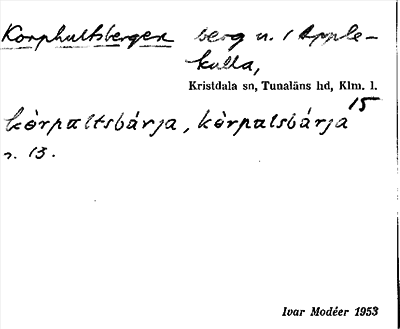 Korphultsbergen berg n. i Äpple-
kulla,
Kristdala sn, Tunaläns hd, Klm. l.
15
kòrpaltsbárja, kòrpalsbárja
r. 13.
Ivar Modéer 1953